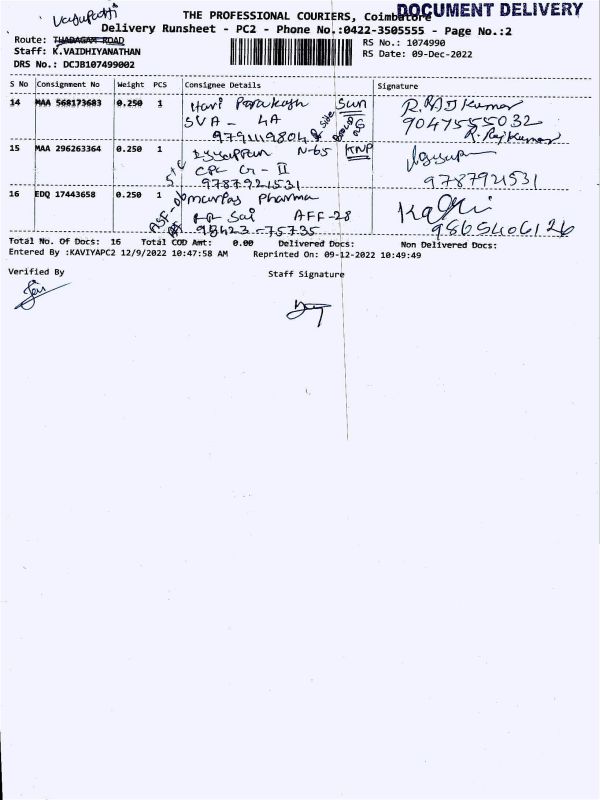 THE PROFESSIONAL COURIERS, Coimbatore
DOCUMENT DELIVERY
Delivery Runsheet - PC2 - Phone No.:0422-3505555 - Page No.:2
Route: THADAGAM ROAD
RS No.: 1074990
Staff: K.VAIDHIYANATHAN
RS Date: 09-Dec-2022
DRS No.: DCJB107499002
S No Consignment No Weight PCS Consignee Details Signature
14 MAA 568173683 0.250 1 Hari Prakash Sun R. Raj Kumar
SVA - 4A 9047555032
9791119804 R. Rajkumar
15 MAA 296263364 0.250 1 Iyyappan N-65 KNP
CPC Cr - II
9787921531 9787921531
16 EDQ 17443658 0.250 1 Pharma
Sai AFF-28
98423-75735 9865406126
Total No. Of Docs: 16 Total COD Amt: 0.00 Delivered Docs: Non Delivered Docs:
Entered By :KAVIYAPC2 12/9/2022 10:47:58 AM Reprinted On: 09-12-2022 10:49:49
Verified By
Staff Signature